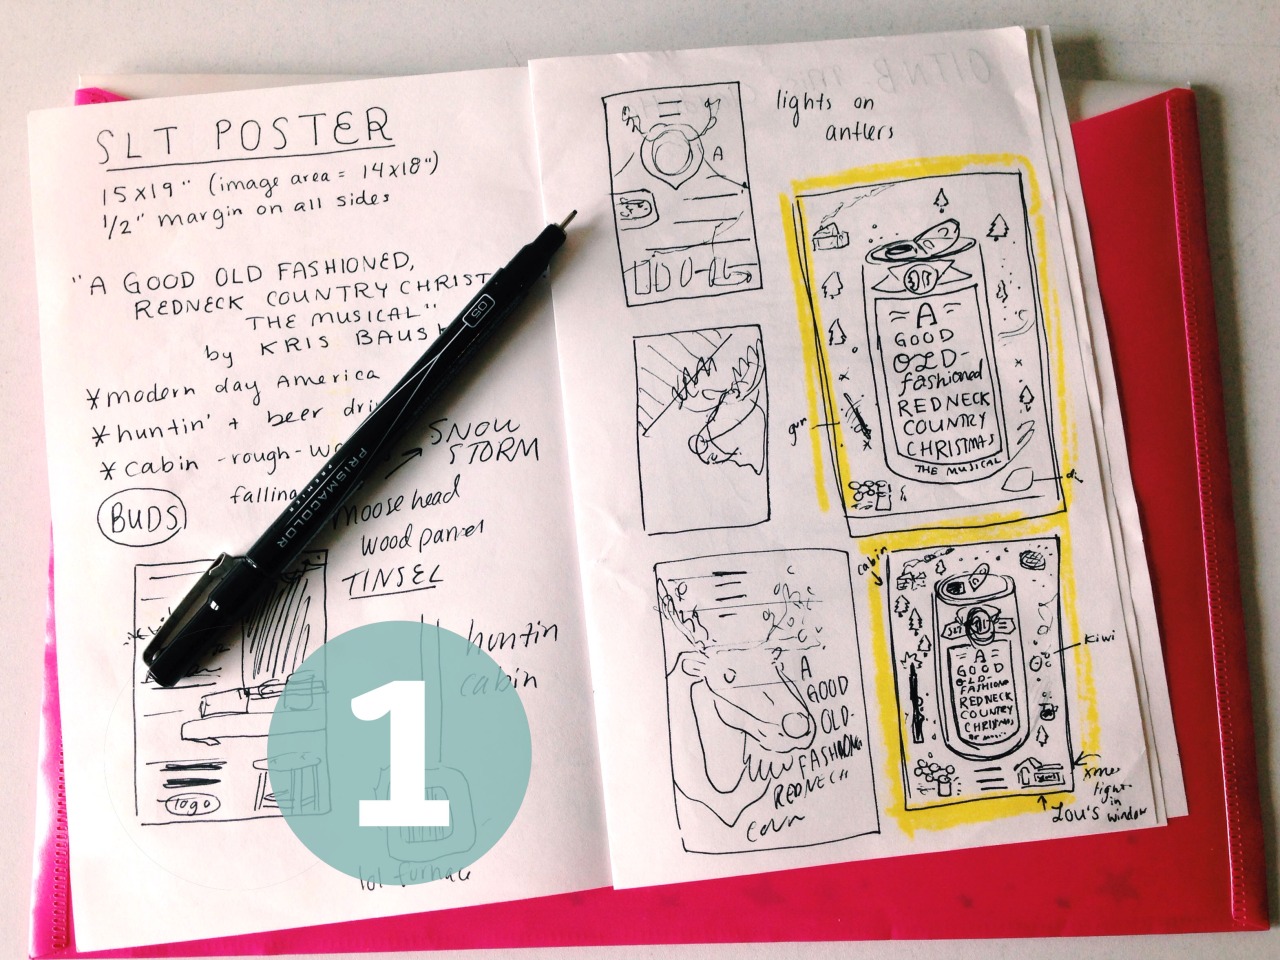 SLT POSTER
15x19" (image area = 14x18")
1/2" margin on all sides
"A GOOD OLD FASHIONED,
REDNECK COUNTRY CHRIST
THE MUSICAL"
by KRIS BAUS
* modern day America
* huntin' + beer dri
* cabin - rough-w
falling
SNOW
STORM
BUDS
moose head
wood panel
TINSEL
huntin
cabin
logo
lol furnace
1
05
PRISMACOLOR
PREMIER
lights on
antlers
A
A
GOOD
OLD-
fashioned
REDNECK
COUNTRY
CHRISTMAS
THE MUSICAL
gun
A
GOOD
OLD-
FASHIONED
REDNECK
COUN
cabin
SLT
A
GOOD
OLD-
FASHIONED
REDNECK
COUNTRY
CHRISTMAS
kiwi
xmas
light
in
Lou's window